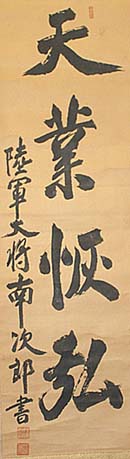 天業恢弘
陸軍大將南次郎書